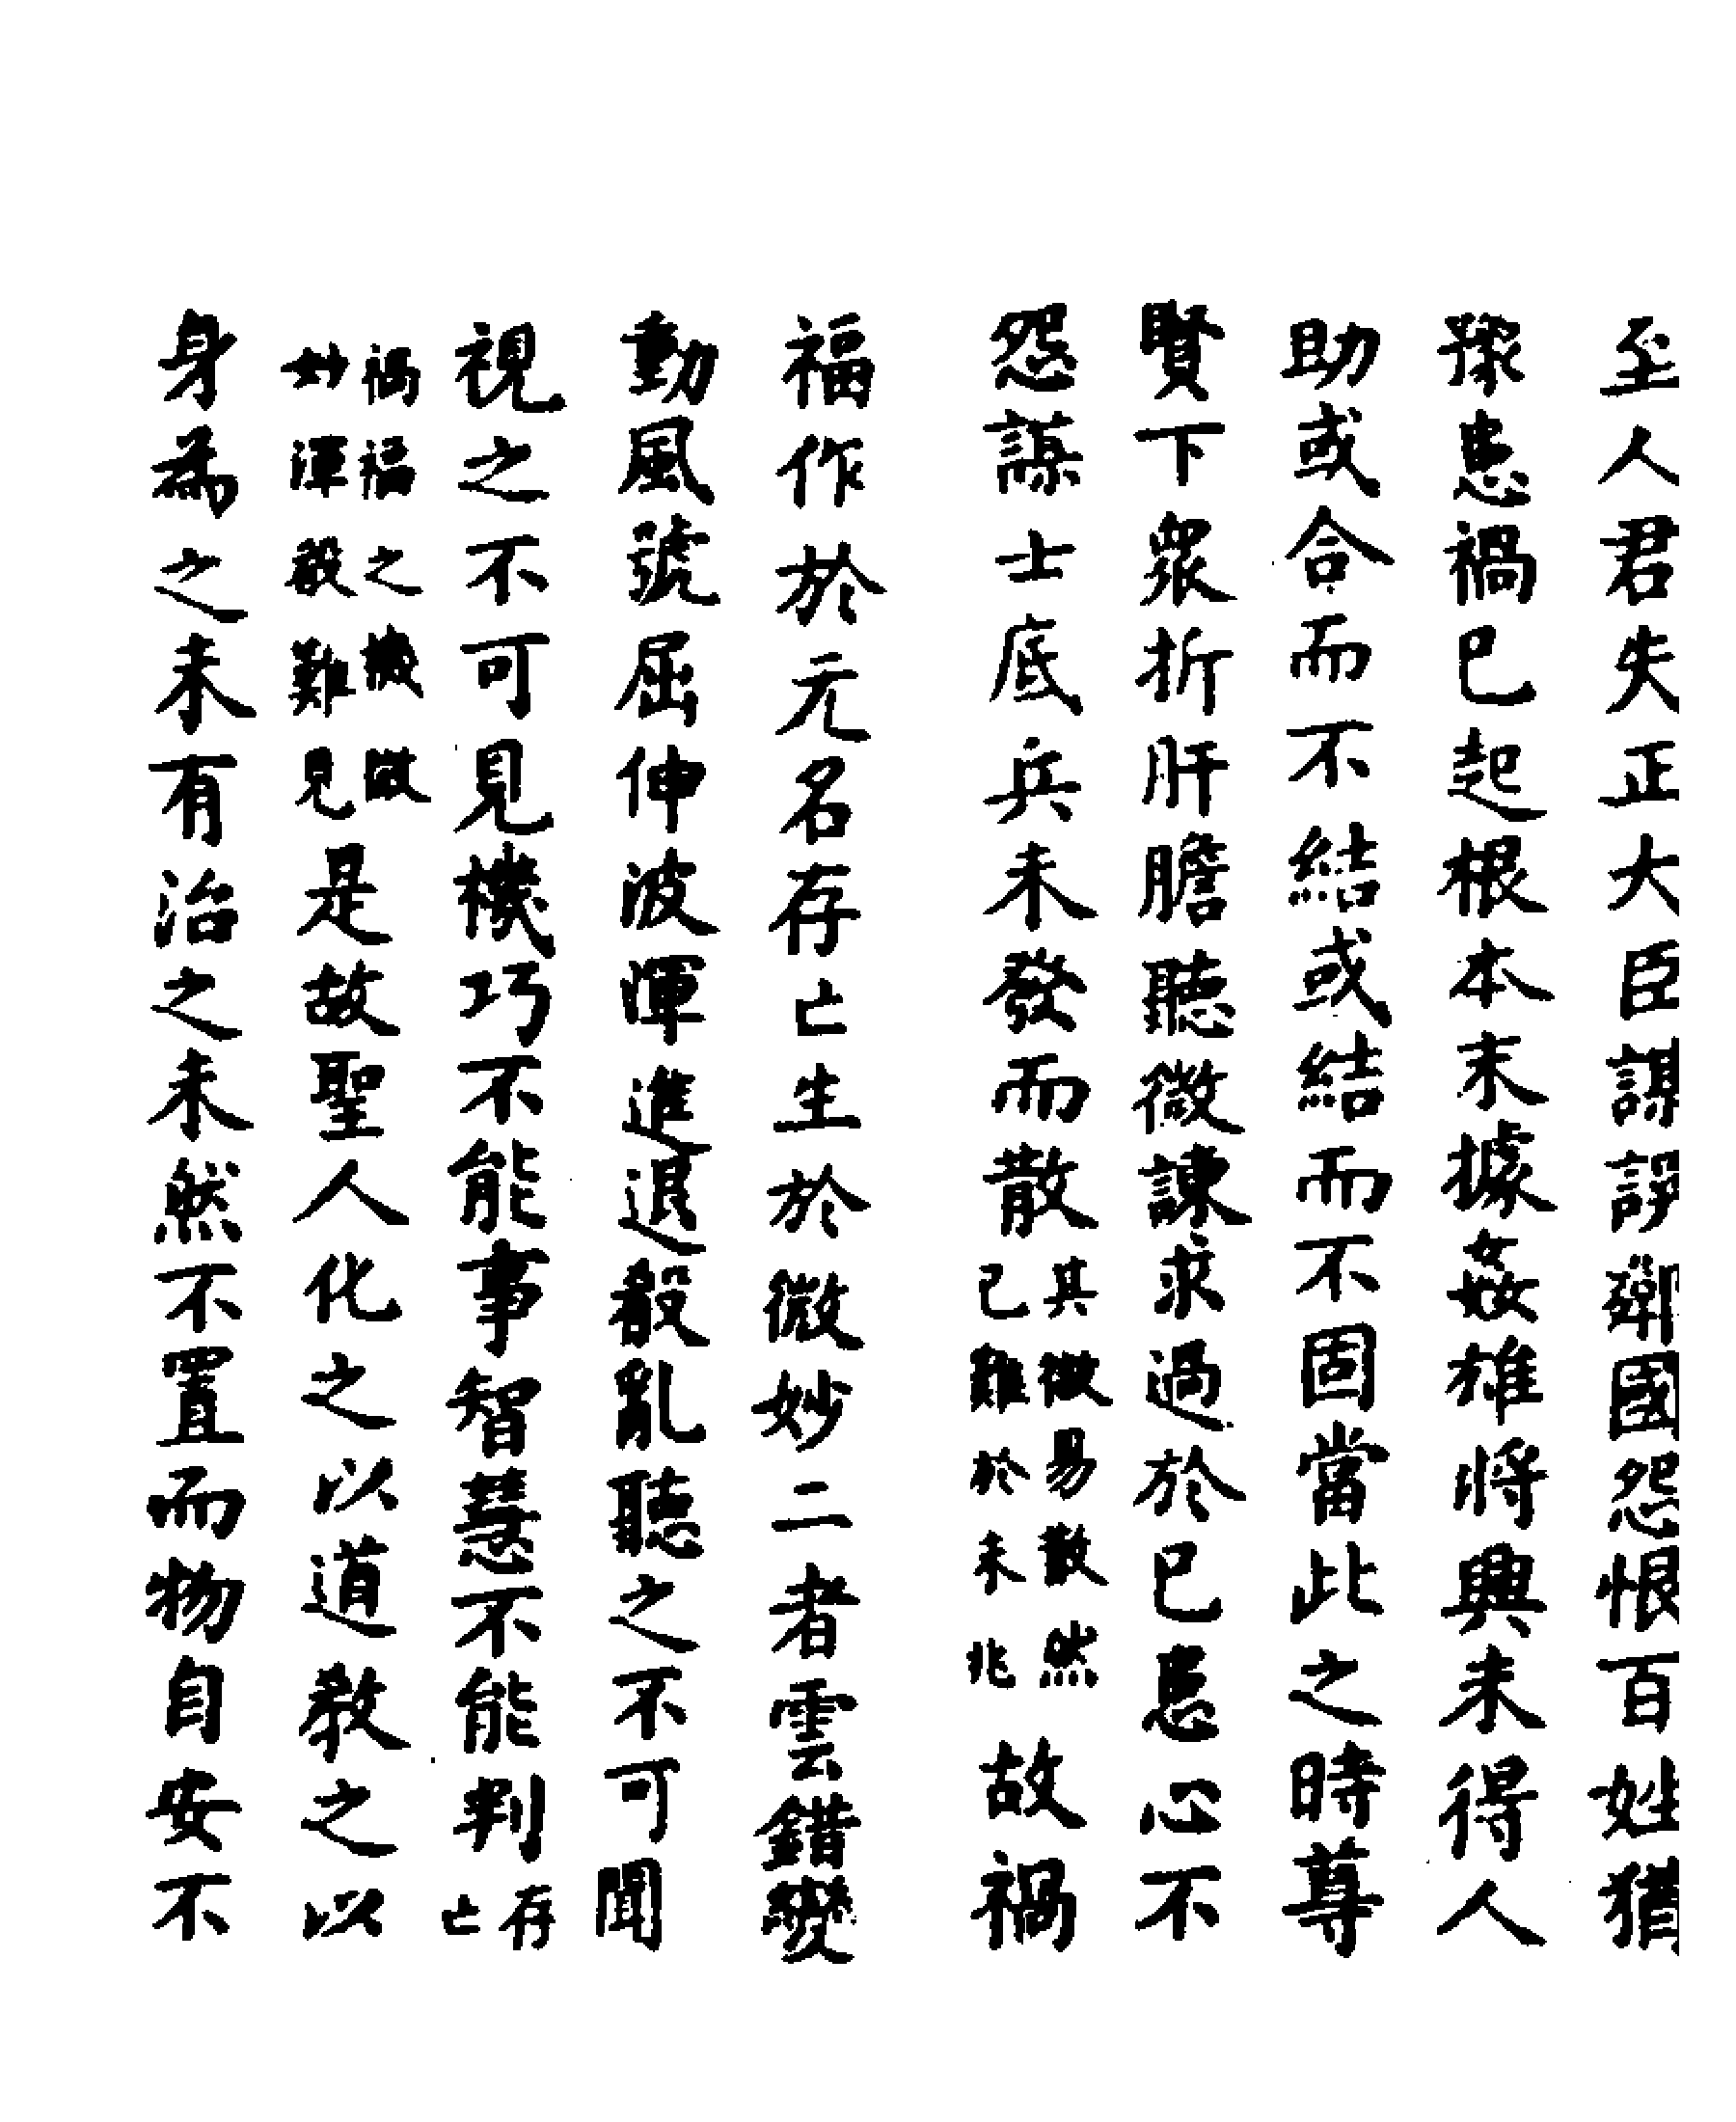 至人君失正大臣謀諍鄰國怨恨百姓猶
豫患禍已起根本未據姦雄將興未得人
助或合而不結或結而不固當此之時尊
賢下眾折肝膽聽微諫求過於已患心不
怨謀士底兵未發而散其微易散然已難於未兆故禍
福作於元名存亡生於微妙二者雲錯變
動風號屈伸波渾進退殽亂聽之不可聞
視之不可見機巧不能事智慧不能判存亡
禍福之機微妙渾殽難見是故聖人化之以道教之以
身為之未有治之未然不置而物自安不